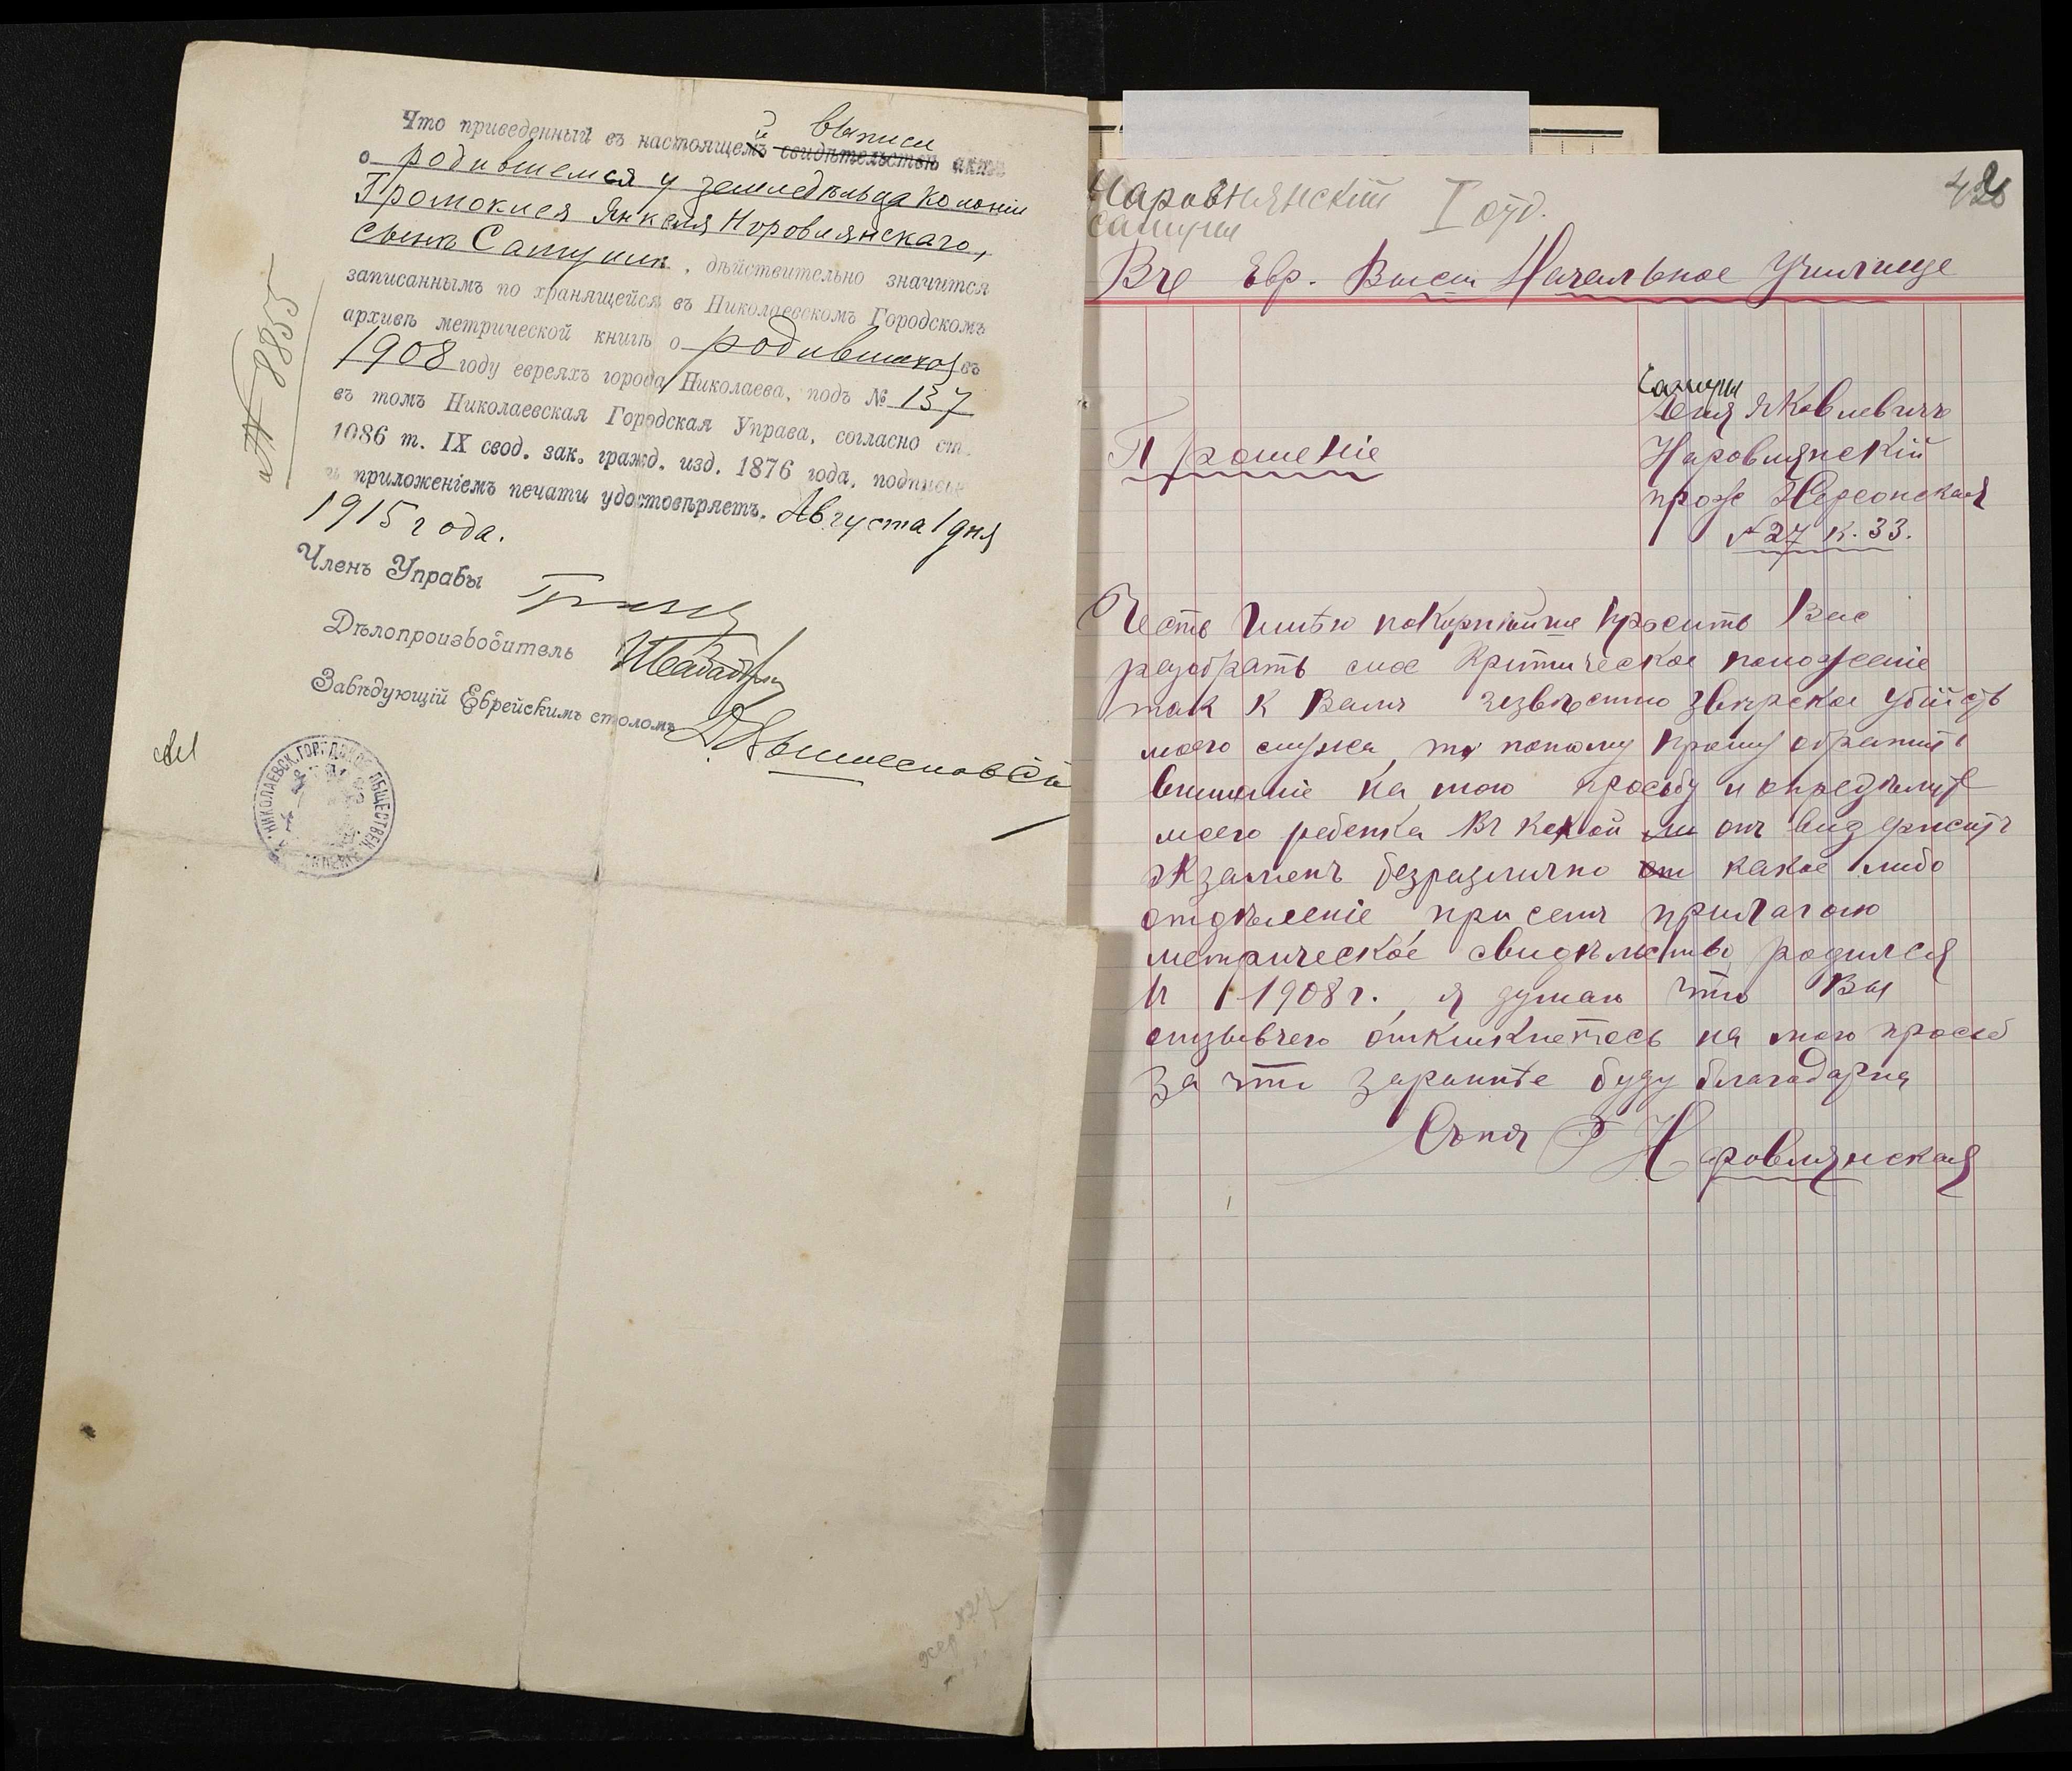 Что приведенный въ настоящей выписи
свидѣтельствѣ актъ
о родившемся у земледѣльца колоніи
Громоклея Янкеля Норовлянскаго,
сынъ Самуилъ, дѣйствительно значится
записаннымъ по хранящейся въ Николаевскомъ Городскомъ
архивѣ метрической книгѣ о родившихся въ
1908 году евреяхъ города Николаева, подъ № 137
въ томъ Николаевская Городская Управа, согласно ст.
1086 т. IX свод. зак. гражд. изд. 1876 года, подписью
и приложеніемъ печати удостовѣряетъ. Августа 1 дня
1915 года.
Членъ Управы
Дѣлопроизводитель
Завѣдующій Еврейскимъ столомъ
№ 8835
НИКОЛАЕВСК. ГОРОДСКОЕ ОБЩЕСТВЕН. УПРАВЛЕНІЕ
Наровлянскій I отд.
Самуил
Въ Евр. Высш Начальное Училище
Самуил
Яковлевичъ
Прошеніе
Наровлянскій
прож Херсонская
№ 27 к. 33.
Честь Имѣю покорнѣйше просить Вас
разобрать мое Критическое положеніе
так к Вамъ извѣстно звѣрское убійств
моего мужа, то потому прошу обратить
вниманіе на мою просьбу и опредѣлить
моего ребенка Въ какой ли онъ выдержитъ
Экзаменъ безразлично от какое либо
отдѣленіе, при семъ прилагаю
метрическое свидѣльство родился
в 1908 г., я думаю что Вы
отзывчего откликнетесь на мою просьб
за что заранѣе буду благодарна
Наровлянская